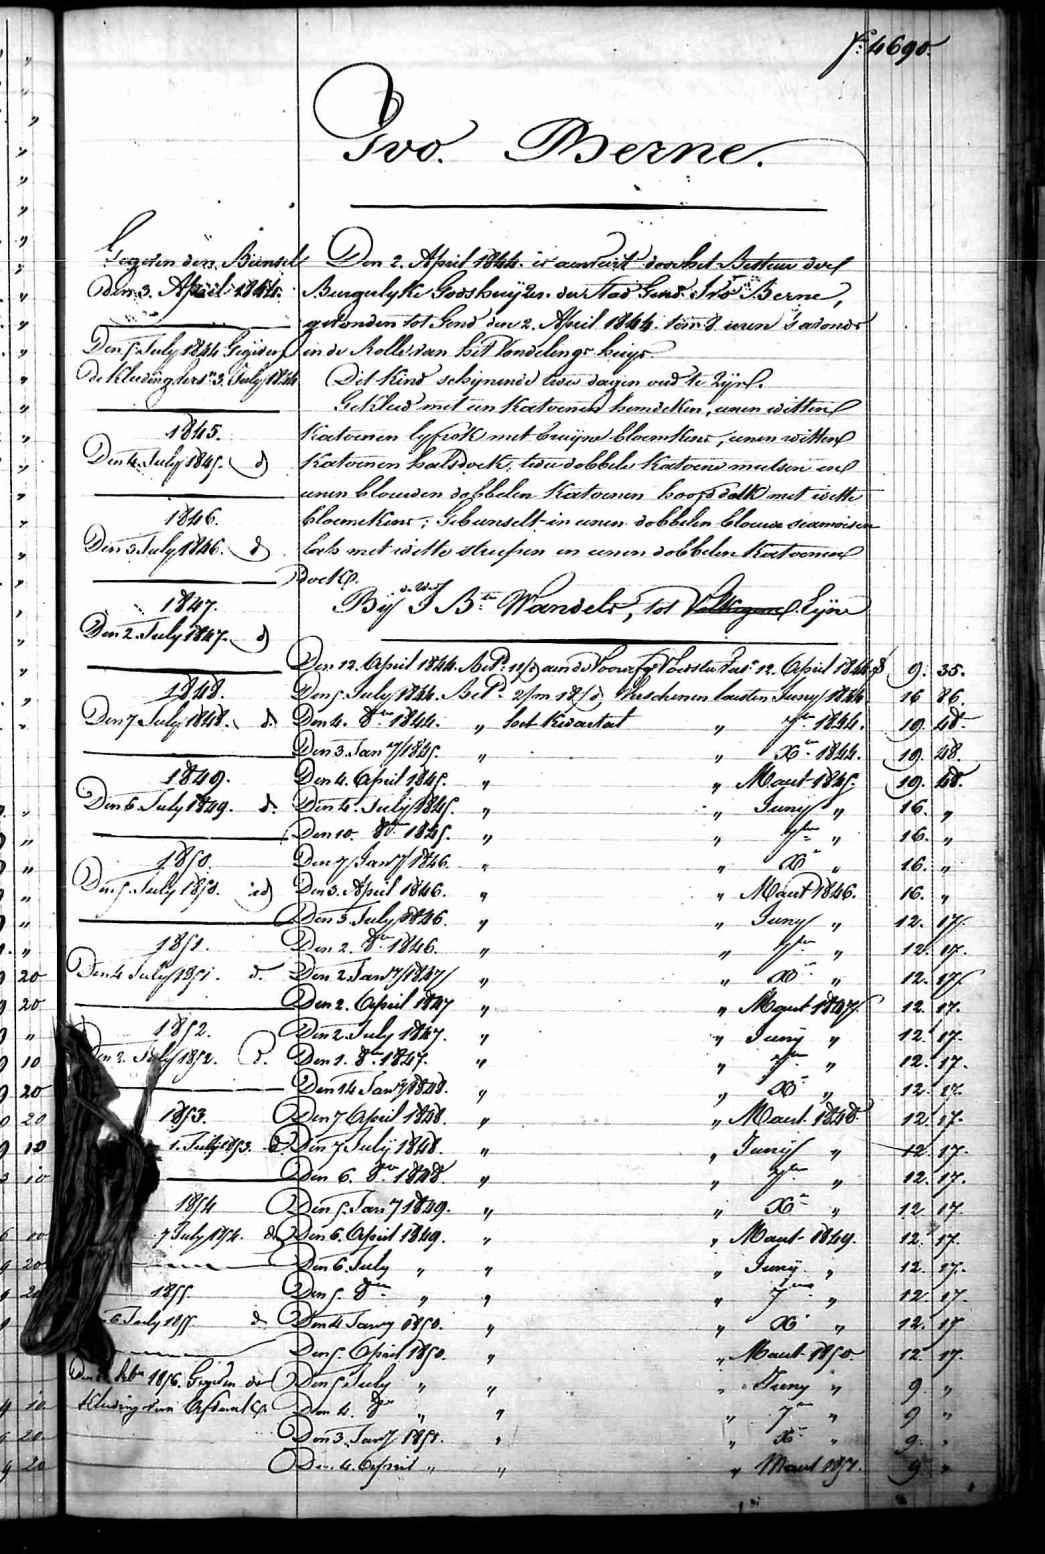 f° 4690.
Ivo. Berne.
Gegeven den Bunsel
den 3. April 1844.
Den 5 July 1844 Gegeven
de Kleding vers. 3. July 1844
1845.
Den 4. July 1845. d
1846.
Den 3 July 1846. d
1847.
Den 2. July 1847. d
1848.
Den 7 July 1848. d.
1849.
Den 6 July 1849. d.
1850.
Den 5 July 1850. id
1851.
Den 4 July 1851. d.
1852.
Den 2. July 1852. d.
1853.
1. July 1853. d.
1854
7 July 1854. d
1855
6 July 1855 d
1856. Gegeven de
Kleding van
Den 2. April 1844. is aenveirt door het Bestuur der
Burgerlyke Godshuijzen der stad Gend Ivo Berne,
gevonden tot Gend den 2. April 1844 ten 8 uren s'avonds
in de Rolle van het Vondelings huys
Dit Kind schynende twee dagen oud te zyn.
Gekleed met een Katoenen hemdeken, eenen witten
Katoenen lyfrok met bruyne bloemkens, eenen witten
Katoenen halsdoek, twee dobbele Katoene mutsen en
eenen blouwen dobbelen Katoenen hoofddoek met witte
bloemekens; Gebunselt in eenen dobbelen blouwe siamoisen
met witte streepen en eenen dobbelen Katoenen
doek.
Bij J Bte Wandels, tot Eyne
Den 12. April 1844. 12. April 1844 9. 35.
Den 5 July 1844. Verschenen laesten Juny 1844 16 86.
Den 4. 8bre 1844. „ het Kwartael „ 7bre 1844. 19. 48.
Den 3. Janry 1845. „ „ Xbre 1844. 19. 48.
Den 4. April 1845. „ „ Maert 1845. 19. 48.
Den 4. July 1845. „ „ Juny „ 16. „
Den 10. 8bre 1845. „ „ 7bre „ 16. „
Den 7 Janry 1846. „ „ Xbre „ 16. „
Den 3. April 1846. „ „ Maert 1846. 16. „
Den 3. July 1846. „ „ Juny „ 12. 17.
Den 2. 8bre 1846. „ „ 7bre „ 12. 17.
Den 2 Janry 1847 „ „ Xbre „ 12. 17
Den 2. April 1847 „ „ Maert 1847 12. 17.
Den 2. July 1847. „ „ Juny „ 12. 17.
Den 1. 8bre 1847. „ „ 7bre „ 12. 17.
Den 14 Janry 1848. „ „ Xbre „ 12. 17.
Den 7 April 1848. „ „ Maert 1848 12 17.
Den 7 July 1848. „ „ Juny „ 12. 17.
Den 6. 8bre 1848 „ „ 7bre „ 12. 17.
Den 5. Janry 1849. „ „ Xbre „ 12 17.
Den 6. April 1849. „ „ Maert 1849. 12. 17.
Den 6. July „ „ „ Juny „ 12. 17.
Den 5. 8bre „ „ „ 7bre „ 12 17.
Den 4 Janry 1850. „ „ Xbre „ 12. 17
Den 5. April 1850. „ „ Maert 1850 12 17.
Den 5 July „ „ „ Juny „ 9 „
Den 4. 8bre „ „ „ 7bre „ 9 „
Den 3. Janry 1851. „ „ Xbre „ 9. „
Den 4. April „ „ „ Maert 1851. 9 „